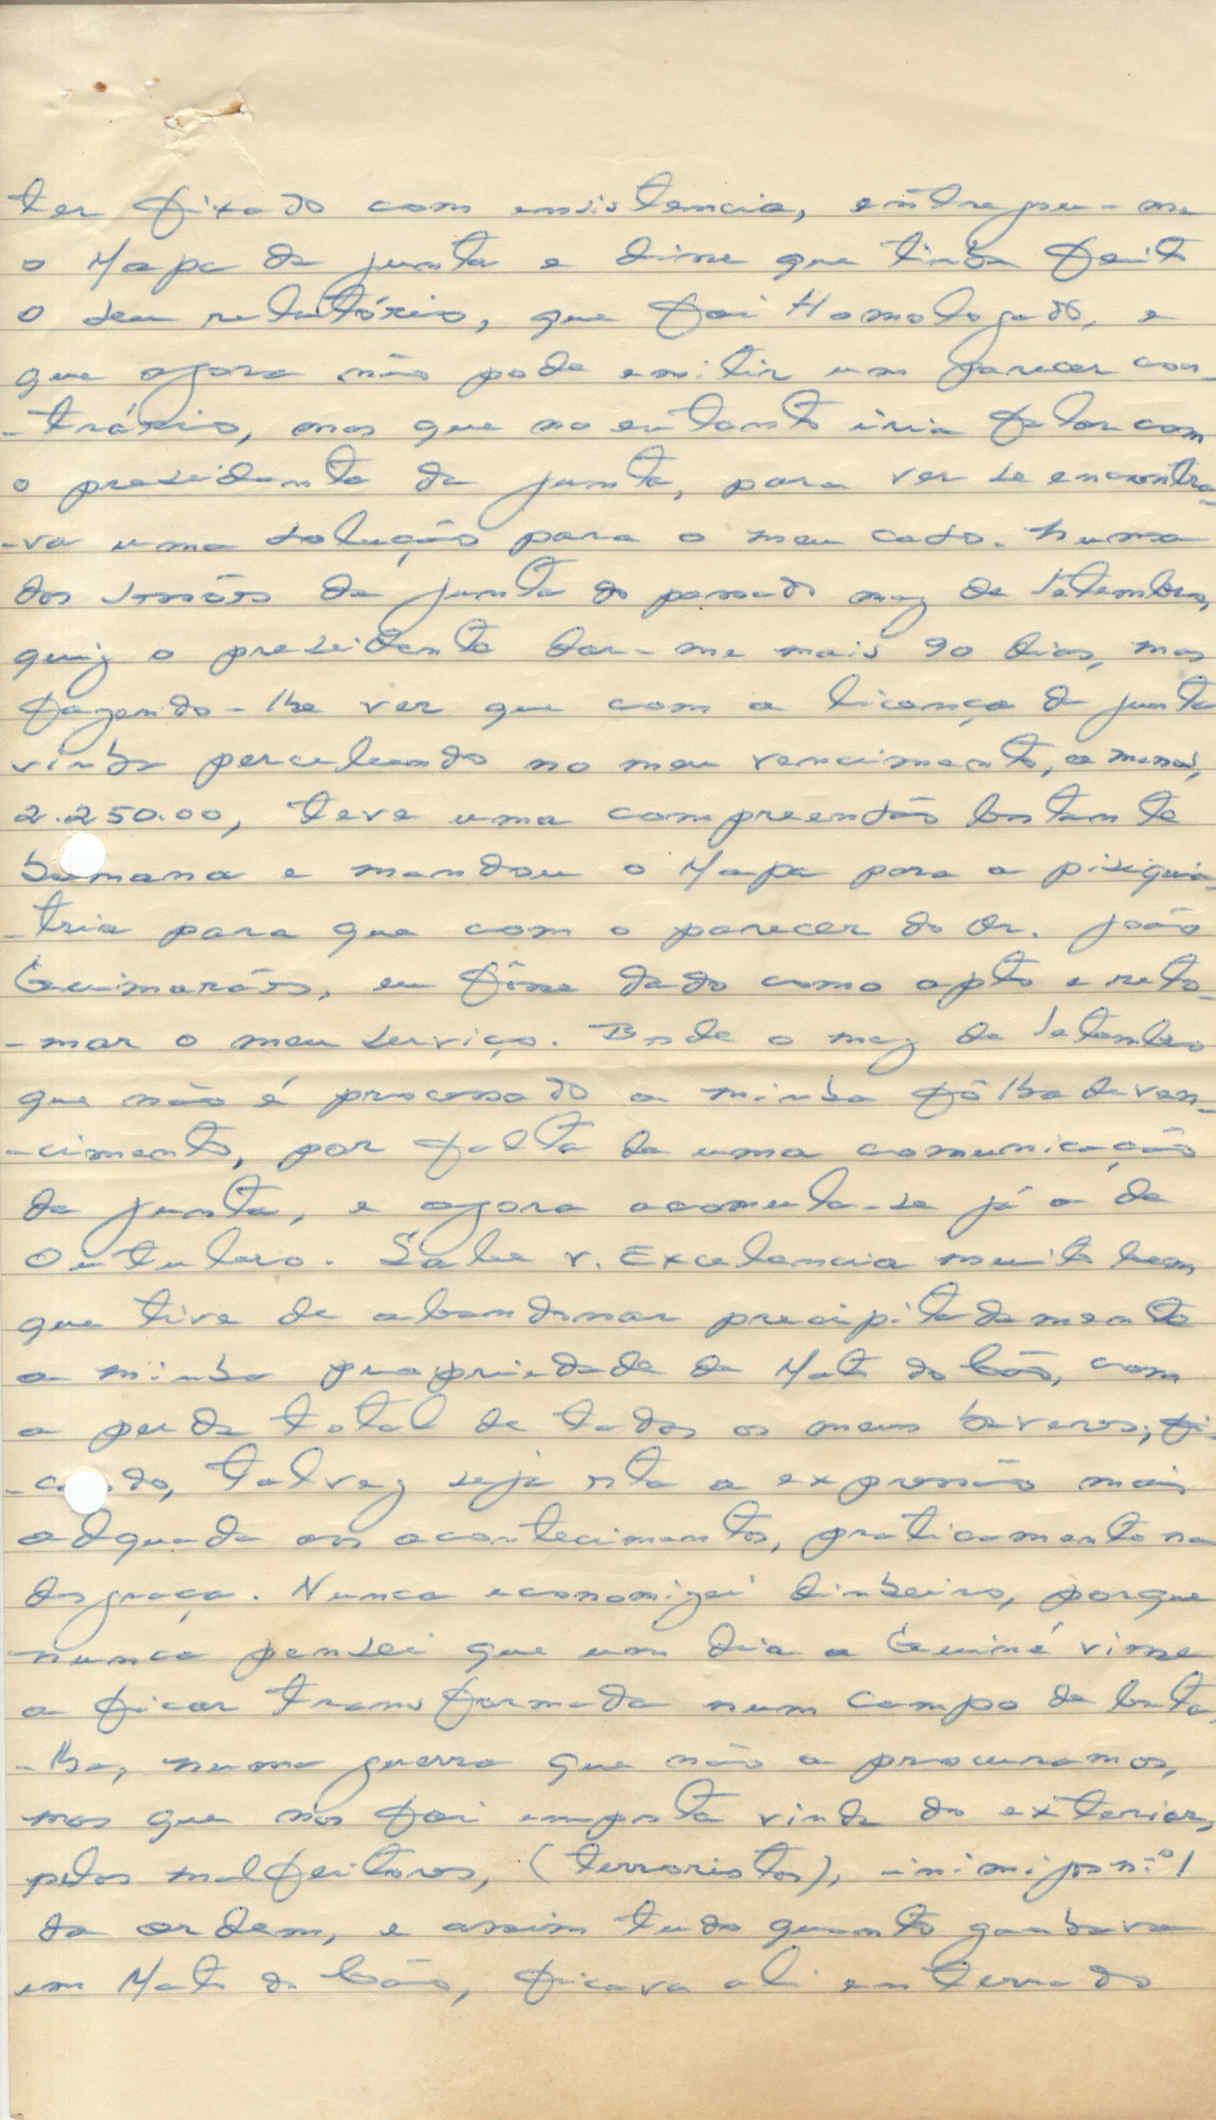 ter fixado com insistencia, entregou-me
o Mapa da junta e disse que tinha feito
o seu relatório, que foi Homologado, e
que agora não pode emitir um parecer con-
-trário, mas que no entanto iria falar com
o presidente da junta, para ver se encontra-
-va uma solução para o meu caso. Numa
das sessões da junta do passado mez de Setembro,
quiz o presidente dar-me mais 90 dias, mas
fazendo-lhe ver que com a licença da junta
vinha percebendo no meu vencimento, a menos,
2.250.00, teve uma compreensão bastante
humana e mandou o Mapa para a pisiquia-
-tria para que com o parecer do Dr. João
Guimarães, eu fôsse dado como apto e reto-
-mar o meu serviço. Desde o mez de Setembro
que não é processado a minha fôlha de ven-
-cimento, por falta de uma comunicação
da junta, e agora acomula-se já a de
Outubro. Sabe V. Excelencia muito bem
que tive de abandonar precipitadamente
a minha propriedade de Mato do Cão, com
a perda total de todos os meus haveres, fi-
-cando, talvez seja esta a expressão mais
adquada aos acontecimentos, praticamente na
desgraça. Nunca economizei dinheiro, porque
nunca pensei que um dia a Guiné visse
a ficar transformada num campo de bata-
-lha, numa guerra que não a procuramos,
mas que nos foi imposta vinda do exterior,
pelos malfeitores, (terroristas), inimigos n.º 1
da ordem, e assim tudo quanto ganhava
em Mato de Cão, ficava ali enterrado